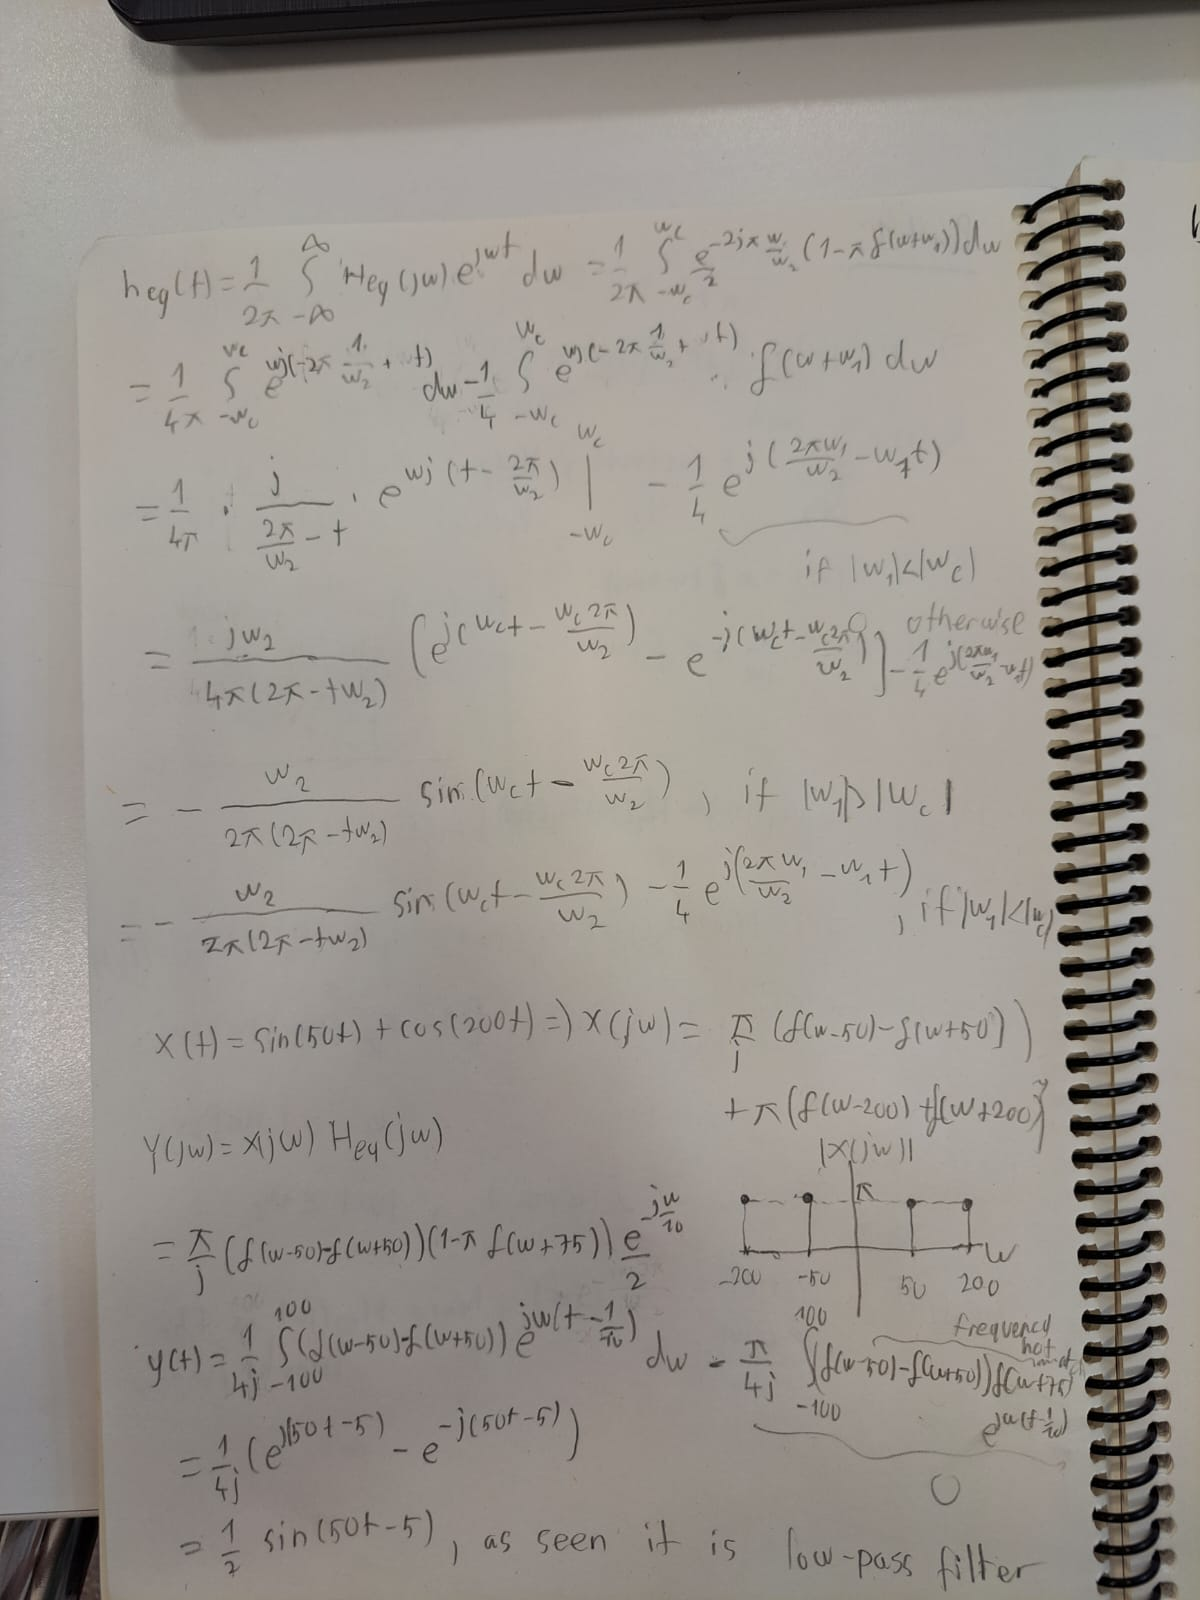 heq(t) = 1/2π ∫_{-∞}^{∞} Heq(jw) e^{jwt} dw = 1/2π ∫_{-wc}^{wc} e^{-2jπ w/w2}/2 (1-π f(w+w1)) dw
= 1/4π ∫_{-wc}^{wc} e^{wj(-2π 1/w2 + t)} dw - 1/4 ∫_{-wc}^{wc} e^{wj(-2π 1/w2 + t)} . f(w+w1) dw
= 1/4π . j/(2π/w2 - t) . e^{wj(t - 2π/w2)} |_{-wc}^{wc} - 1/4 e^{j(2πw1/w2 - w1t)}
if |w1|<|wc|
0 otherwise
= jw2/4π(2π-tw2) (e^{j(wct - wc2π/w2)} - e^{-j(wct - wc2π/w2)}] - 1/4 e^{j(2πw1/w2 - w1t)}
= - w2/2π(2π-tw2) sin(wct - wc2π/w2), if |w1|>|wc|
= - w2/2π(2π-tw2) sin(wct - wc2π/w2) - 1/4 e^{j(2πw1/w2 - w1t)}, if |w1|<|wc|
X(t) = sin(50t) + cos(200t) => X(jw) = π/j (f(w-50) - f(w+50))
+ π(f(w-200) + f(w+200))
Y(jw) = X(jw) Heq(jw)
|X(jw)|
π
w
-200 -50 50 200
= π/j (f(w-50)-f(w+50))(1-π f(w+75)) e^{-jw/10}/2
y(t) = 1/4j ∫_{-100}^{100} (f(w-50)-f(w+50)) e^{jw(t-1/10)} dw - π/4j ∫_{-100}^{100} (f(w-50)-f(w+50)) f(w+75) e^{jw(t-1/10)}
frequency not
0
= 1/4j (e^{j(50t-5)} - e^{-j(50t-5)})
= 1/2 sin(50t-5), as seen it is low-pass filter